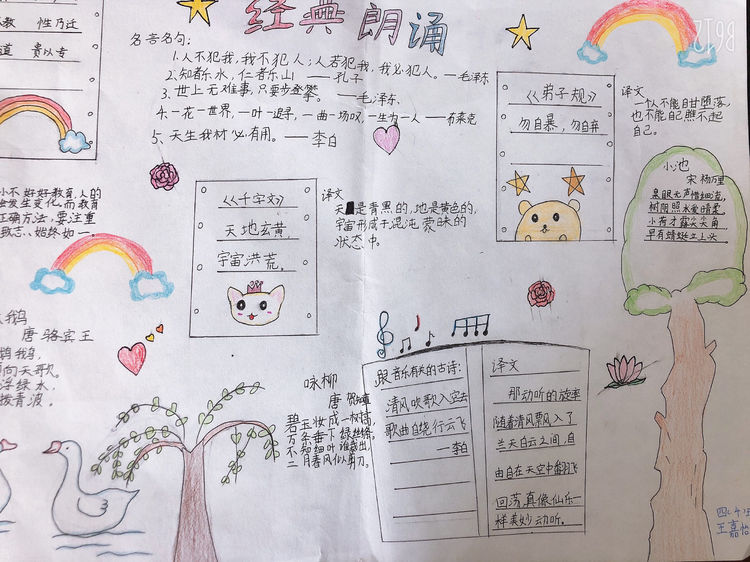 经典朗诵
名言名句:
1.人不犯我,我不犯人;人若犯我,我必犯人。——毛泽东
2.知者乐水,仁者乐山 ——孔子
3.世上无难事,只要步登攀。——毛泽东
4.一花一世界,一叶一追寻,一曲一场叹,一生为一人 ——布莱克
5、天生我材必有用。——李白
教 性乃迁
道 贵以专
小不好好教育,人的
发生变化。而教育
正确方法,要注重
致志、始终如一。
《千字文》
天地玄黄,
宇宙洪荒。
译文
天是青黑的,地是黄色的,
宇宙形成于混沌蒙昧的
状态中。
《弟子规》
勿自暴,勿自弃
译文
一个人不能自甘堕落,
也不能自己瞧不起
自己。
小池
宋 杨万里
泉眼无声惜细流,
树阴照水爱晴柔。
小荷才露尖尖角,
早有蜻蜓立上头
鹅
唐 骆宾王
鹅鹅,
向天歌。
浮绿水,
拨青波。
咏柳
唐 贺知章
碧玉妆成一树高,
万条垂下绿丝绦。
不知细叶谁裁出,
二月春风似剪刀。
跟音乐有关的古诗:
清风吹歌入空去
歌曲自绕行云飞
——李白
译文
那动听的旋律
随着清风飘入了
兰天白云之间,自
由自在天空中翻飞
回荡,真像仙乐一
样美妙动听。
王嘉怡